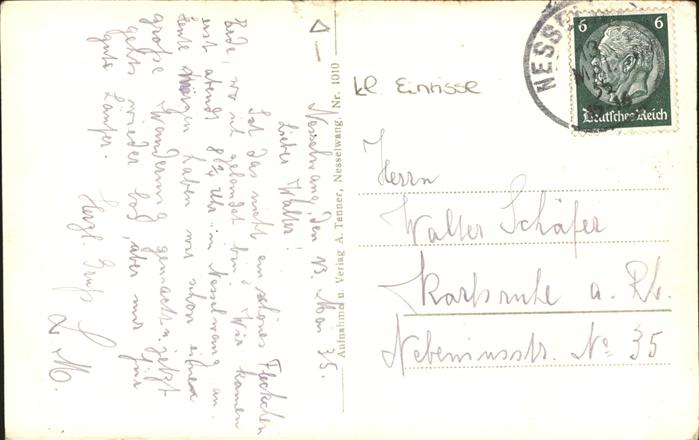 Nesselwang, den 13. Mai 35.
Lieber Walter!
Ist das nicht ein schönes Fleckchen
Erde, wo ich gelandet bin? Wir kamen
erst abends 8¾ Uhr in Nesselwang an.
Heute morgen haben wir schon eine
große Wanderung gemacht u. jetzt
gehts wieder los, aber nur für
gute Läufer.
Herzl. Gruß
L. M.
Aufnahme u. Verlag A. Tanner, Nesselwang. Nr. 1010
kl. Einrisse
NESSEL
13
6 6
Deutsches Reich
Herrn
Walter Schäfer
Karlsruhe a. Rh.
Nebeniusstr. No 35